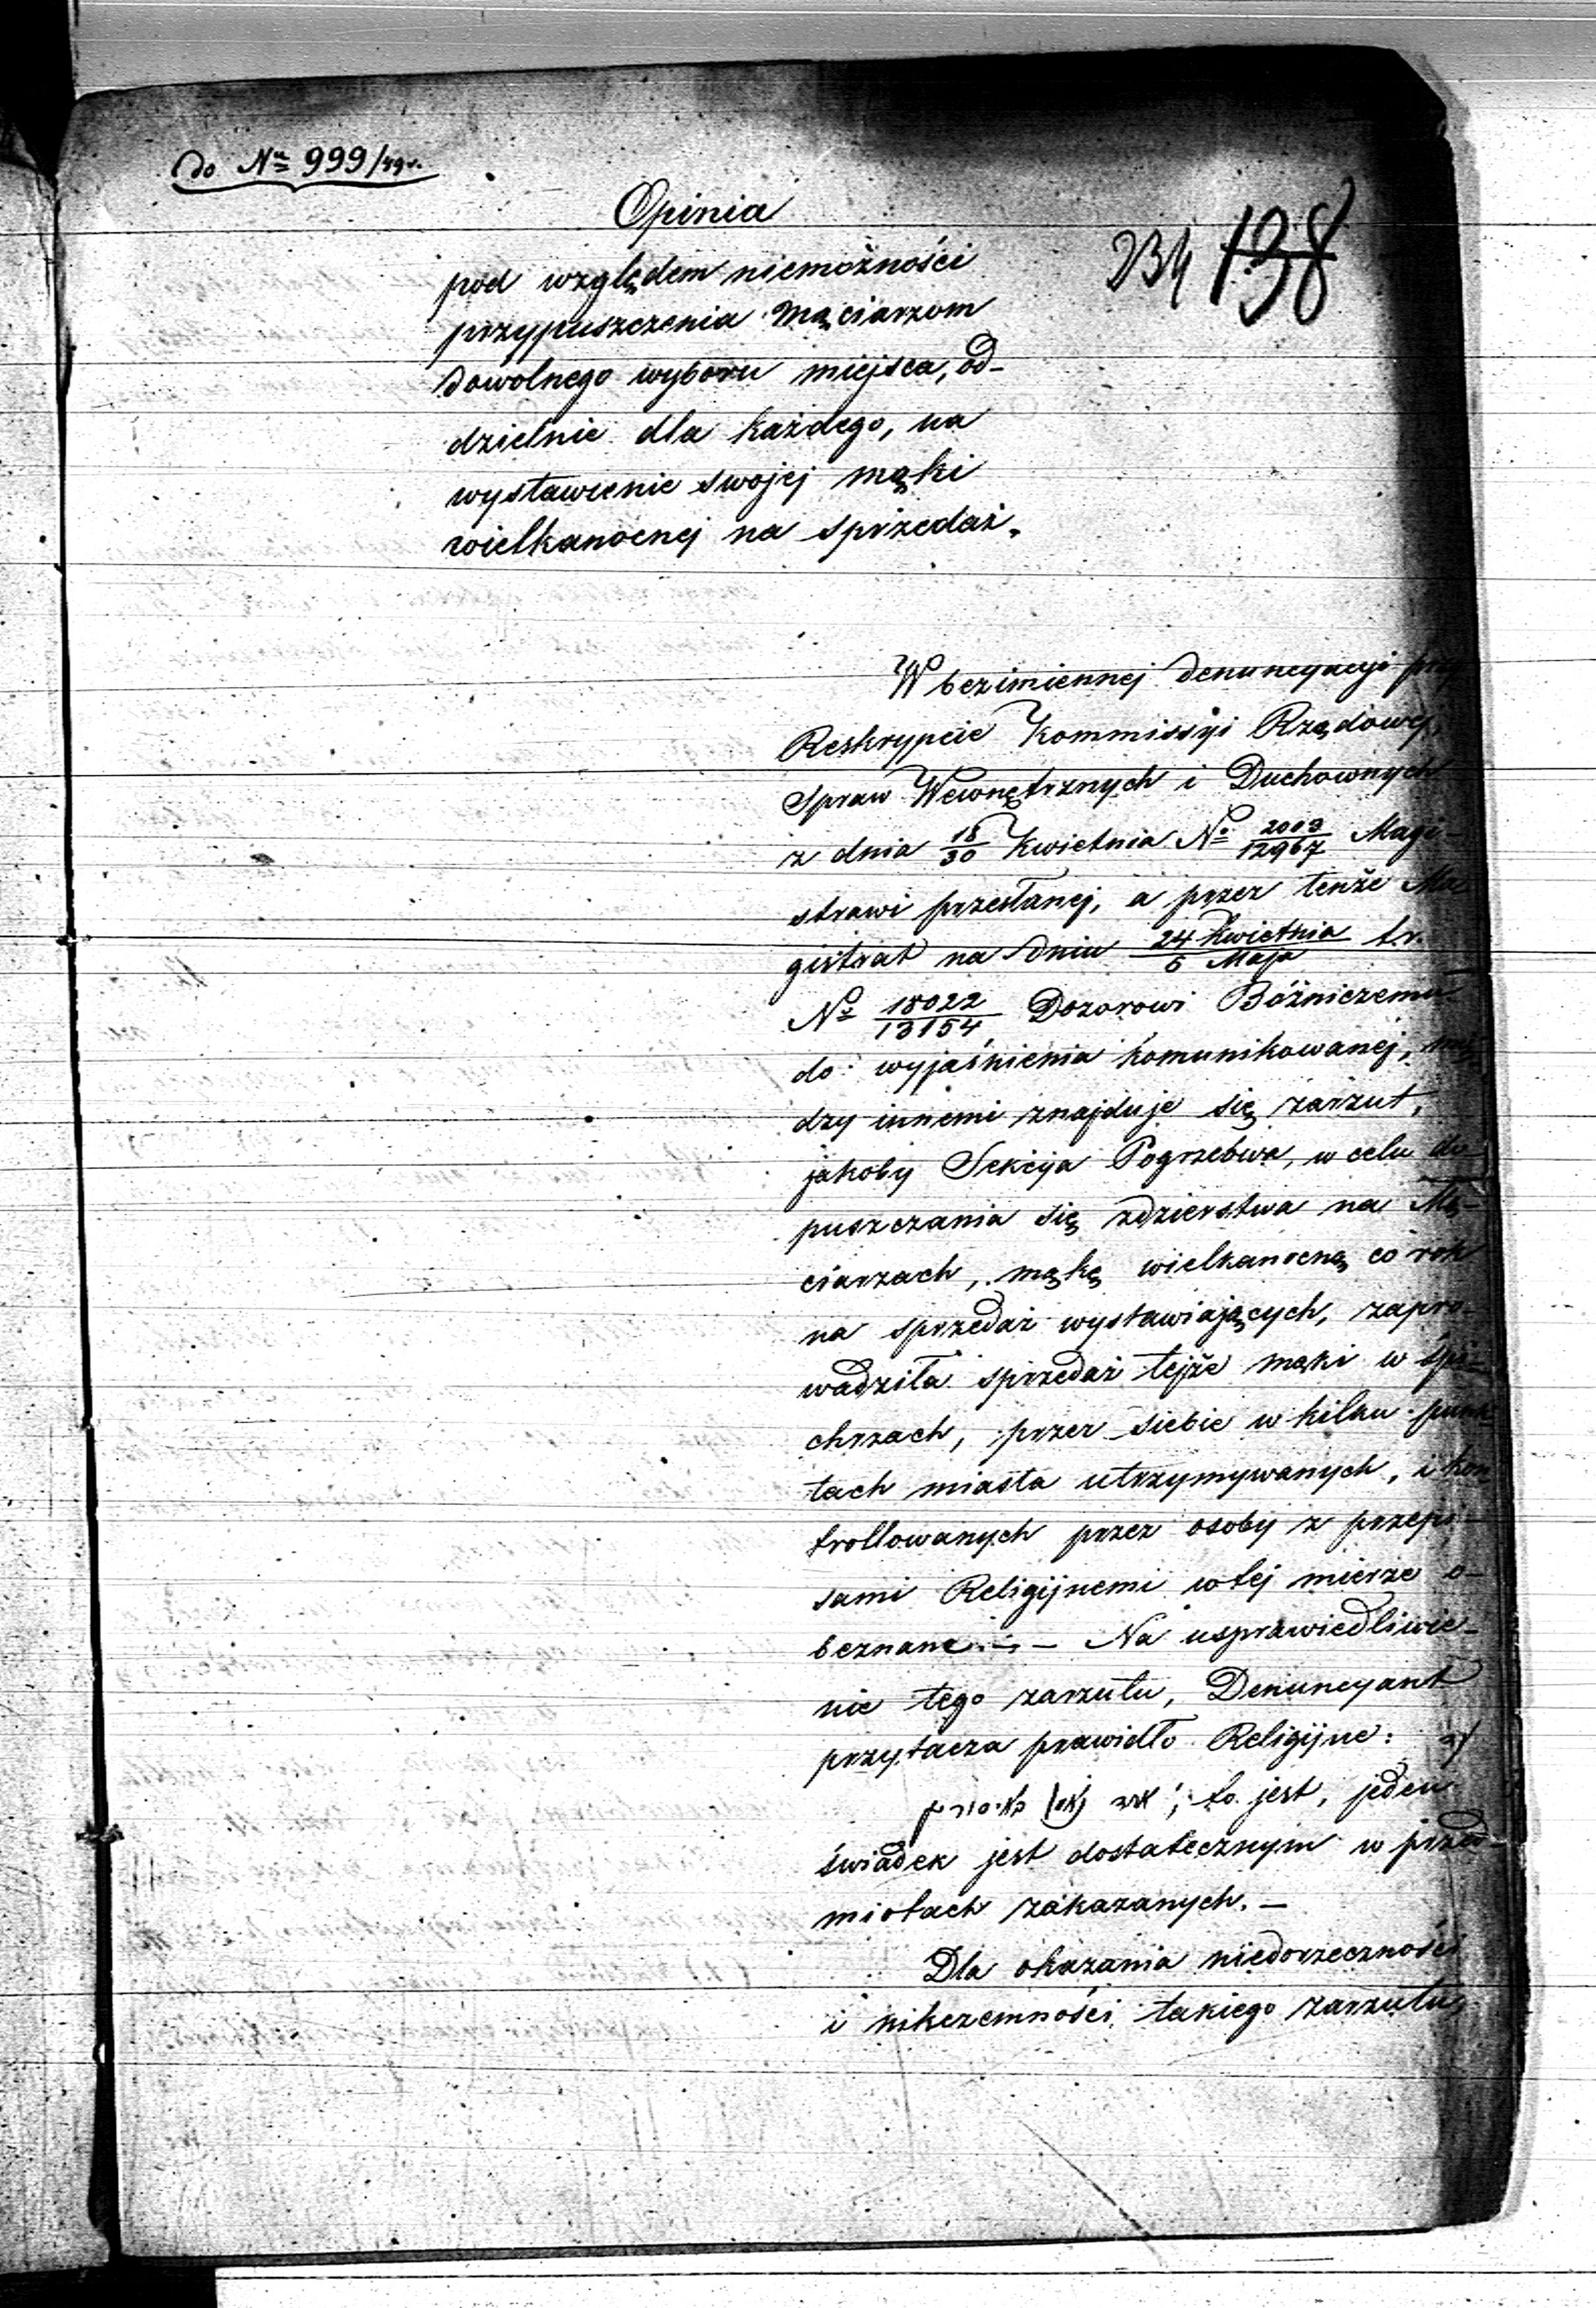 do Nr̲o̲ 999/49 r.
234 138
Opinia
pod względem niemożności
przypuszczenia Mączarzom
dowolnego wyboru miejsca, od-
dzielnie dla każdego, na
wystawienie swojej mąki
wielkanocnej na sprzedaż.
W bezimiennej denuncyacyi przy
Reskrypcie Kommissyi Rządowej
Spraw Wewnętrznych i Duchownych
z dnia 18/30 Kwietnia No 2013/12967 Magi-
strowi przesłanej, a przez tenże Ma
gistrat na dniu 24 Kwietnia/6 Maja t.r.
No 18022/13154, Dozorowi Bóżniczemu
do wyjaśnienia komunikowanej, mię
dzy innemi znajduje się zarzut,
jakoby Sekcija Pogrzebwa, w celu do-
puszczania się zdzierstwa na Mą-
ciarzach, mąkę wielkanocną co rok
na sprzedaż wystawiających, zapro-
wadziła sprzedaż tejże mąki w śpi-
chrzach, przez siebie w kilku punk
tach miasta utrzymywanych, i kon
trollowanych przez osoby z przepi-
sami Religijnemi w tej mierze o-
beznane. — Na usprawiedliwie-
nie tego zarzutu, Denuncyant
przytacza prawidło Religijne:
to jest, jeden
świadek jest dostatecznym w przed-
miotach zakazanych. —
Dla okazania niedorzeczności
i nikczemności takiego zarzutu,